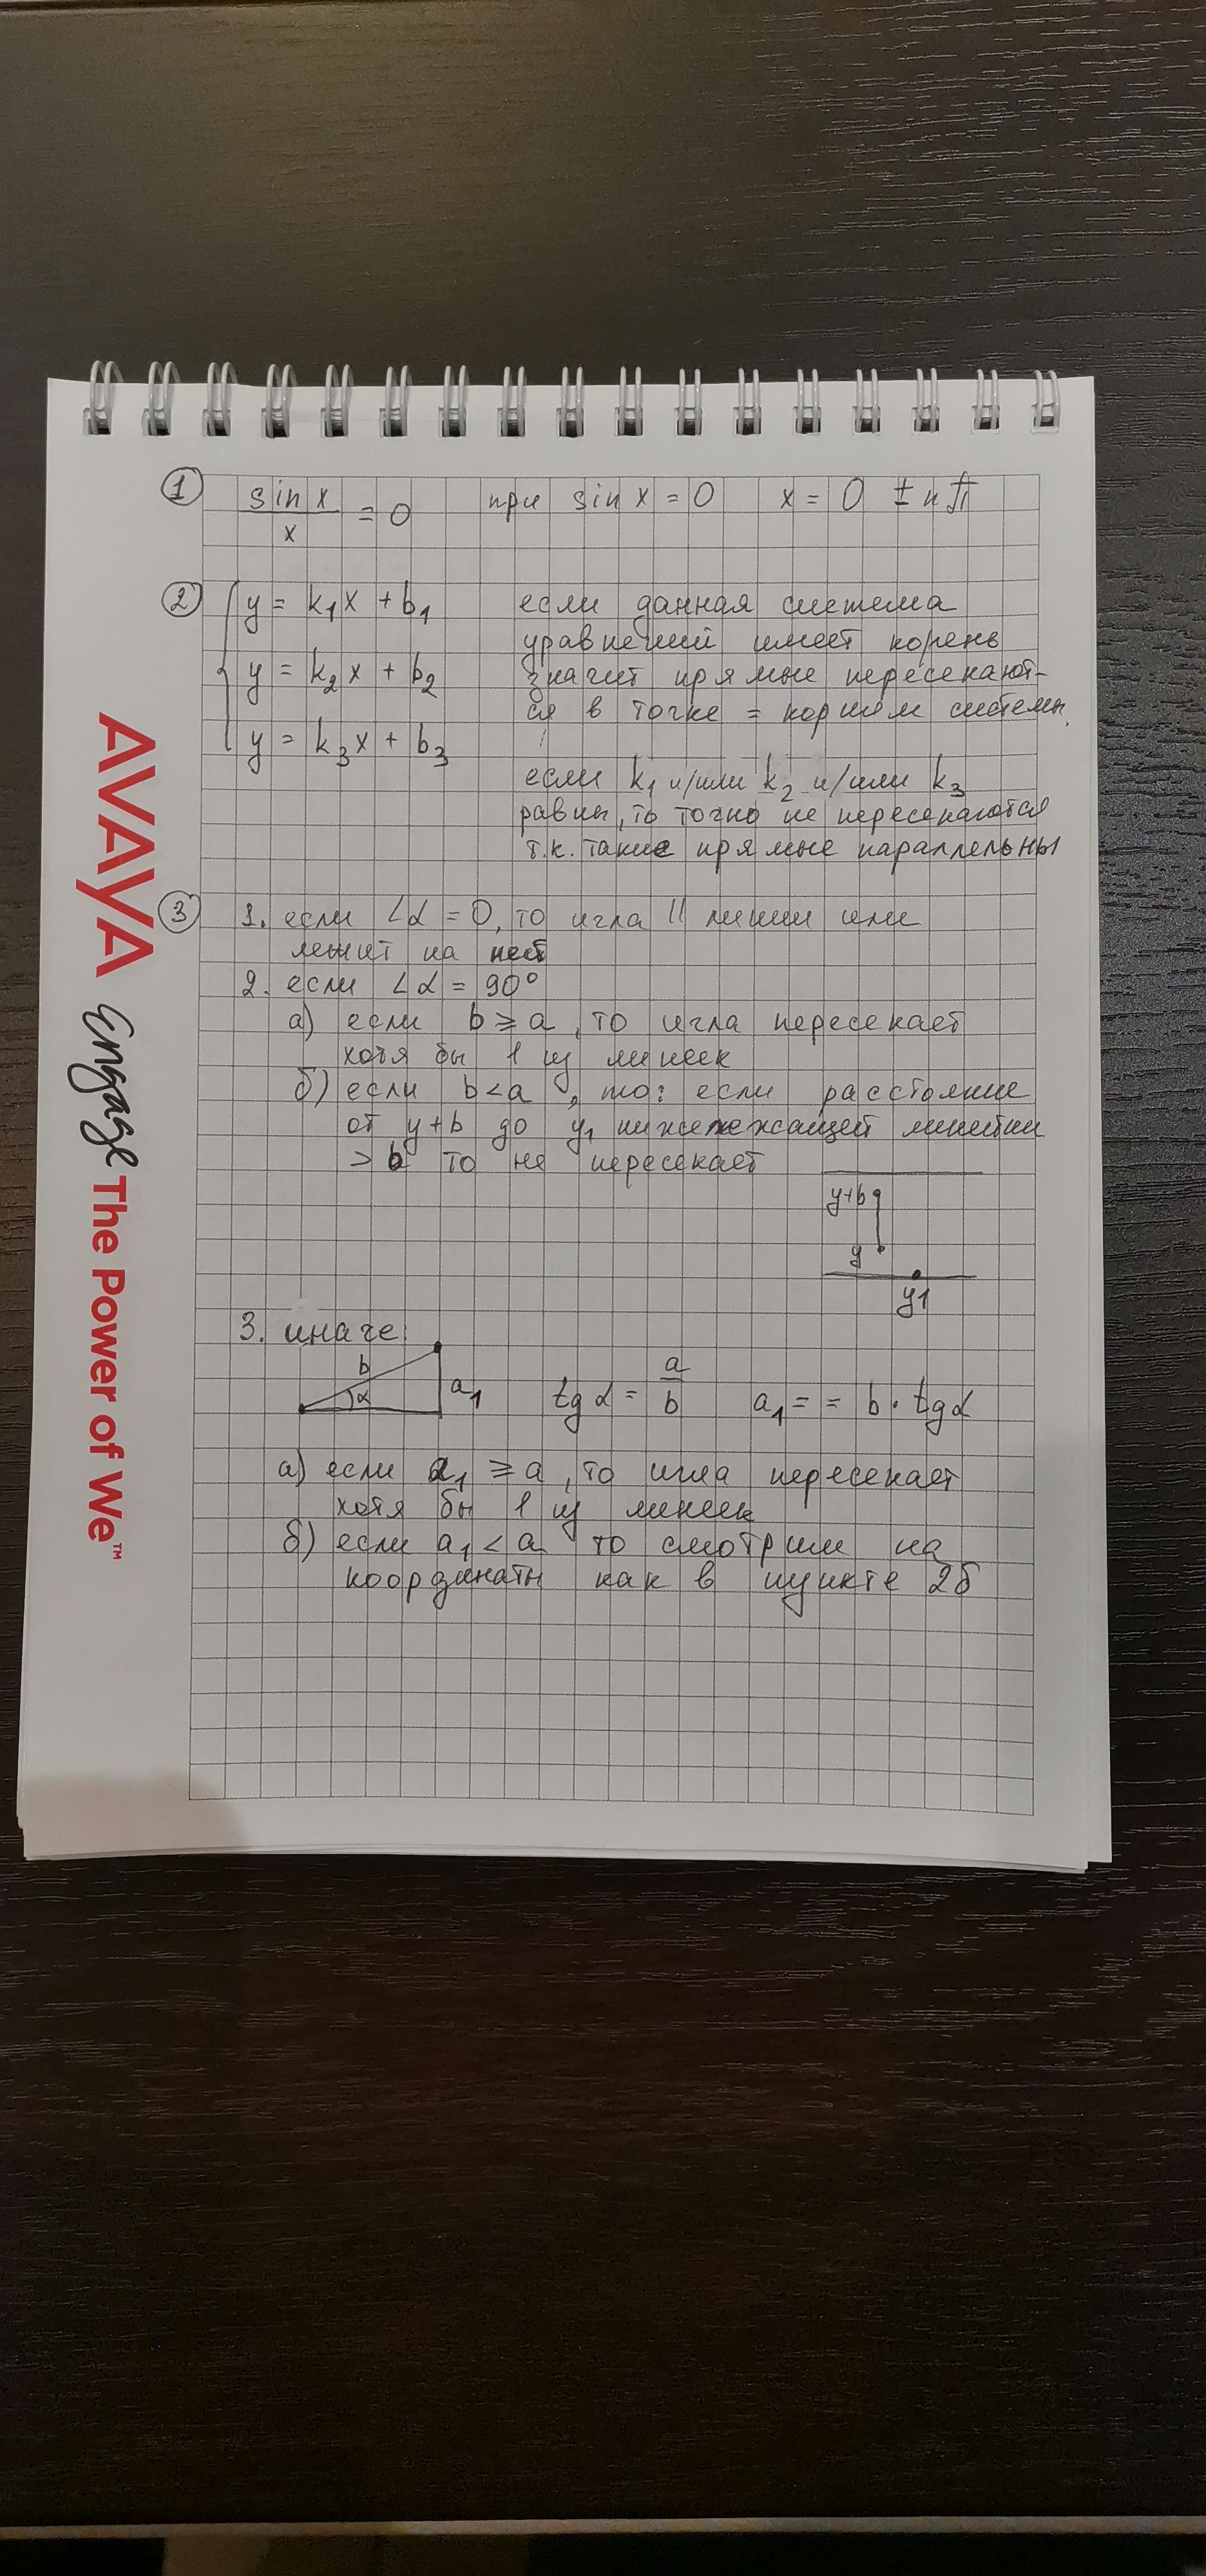 ① sin x / x = 0 при sin x = 0 x = 0 ± nπ
② y = k₁x + b₁ если данная система
уравнений имеет корень
y = k₂x + b₂ значит прямые пересекают-
ся в точке = корням системы.
y = k₃x + b₃
если k₁ и/или k₂ и/или k₃
равны, то точно не пересекаются
т.к. такие прямые параллельны
③ 1. если ∠α = 0, то игла || линии или
лежит на ней
2. если ∠α = 90°
а) если b ≥ a, то игла пересекает
хотя бы 1 из линеек
б) если b < a, то: если расстояние
от y+b до y₁ нижележащей линейки
> b то не пересекает
y+b
y
y1
3. иначе:
b
α
a₁
tg α = a/b a₁ = = b · tg α
а) если a₁ ≥ a, то игла пересекает
хотя бы 1 из линеек
б) если a₁ < a то смотрим на
координаты как в пункте 2б
AVAYA Engage The Power of We™